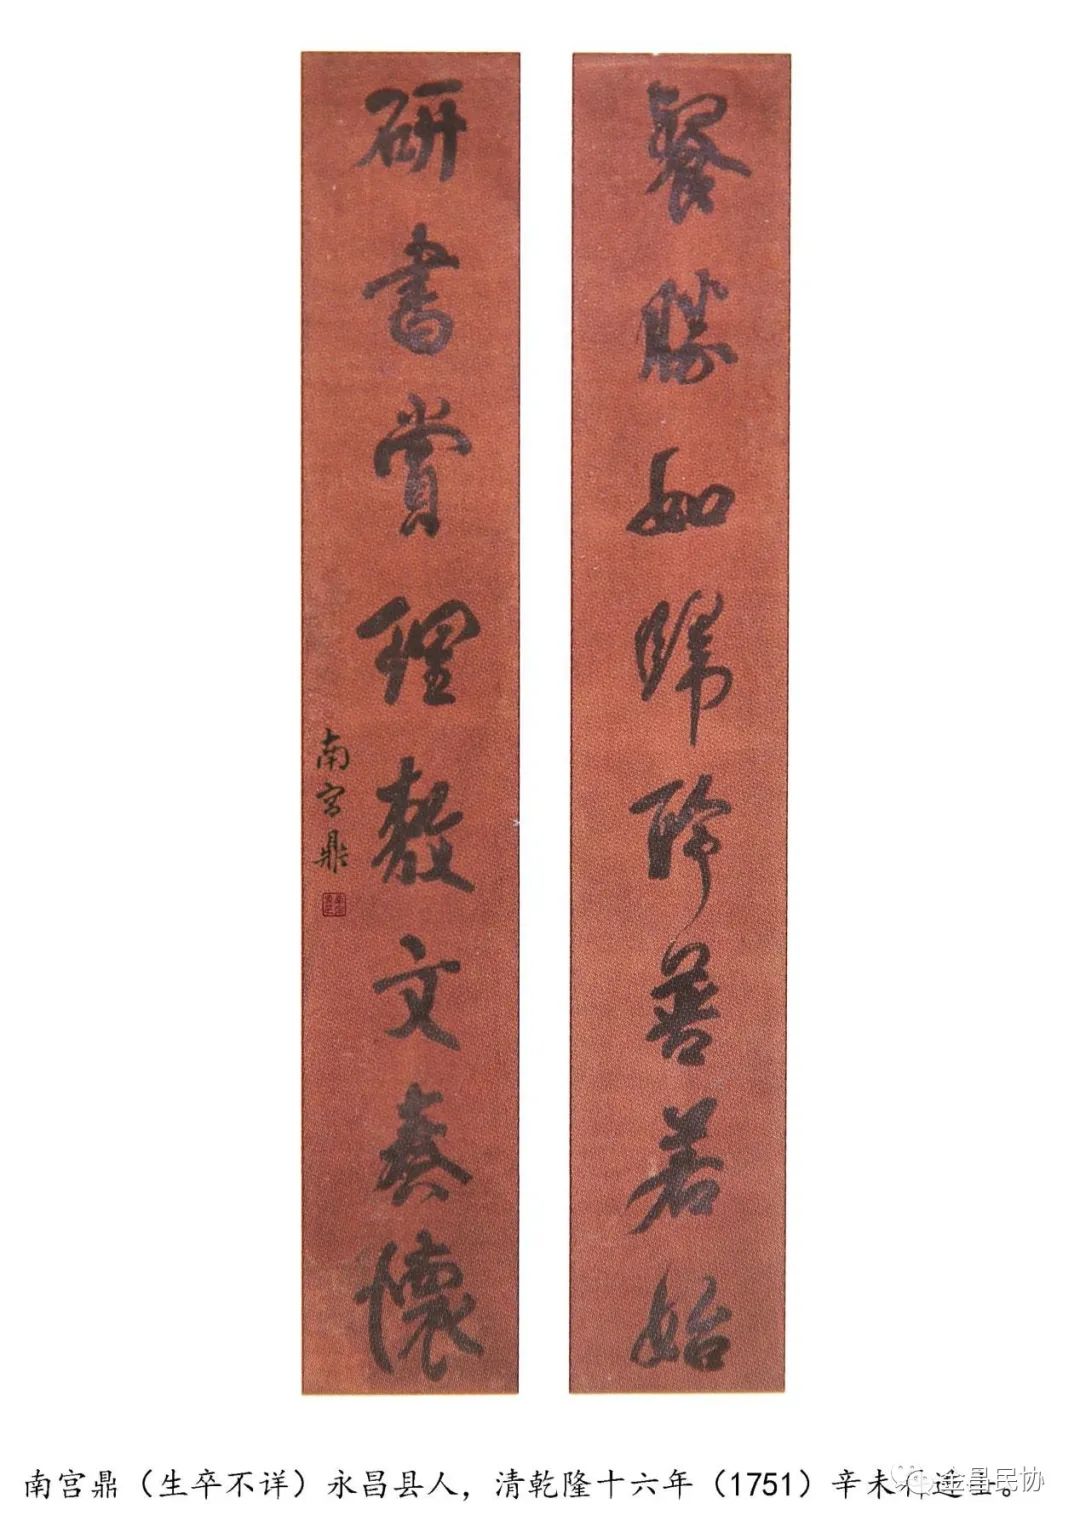 餐勝如歸聆善若始
研書賞理敷文奏懷
南宮鼎
南宫鼎（生卒不详）永昌县人，清乾隆十六年（1751）辛未科进士。
金昌民协